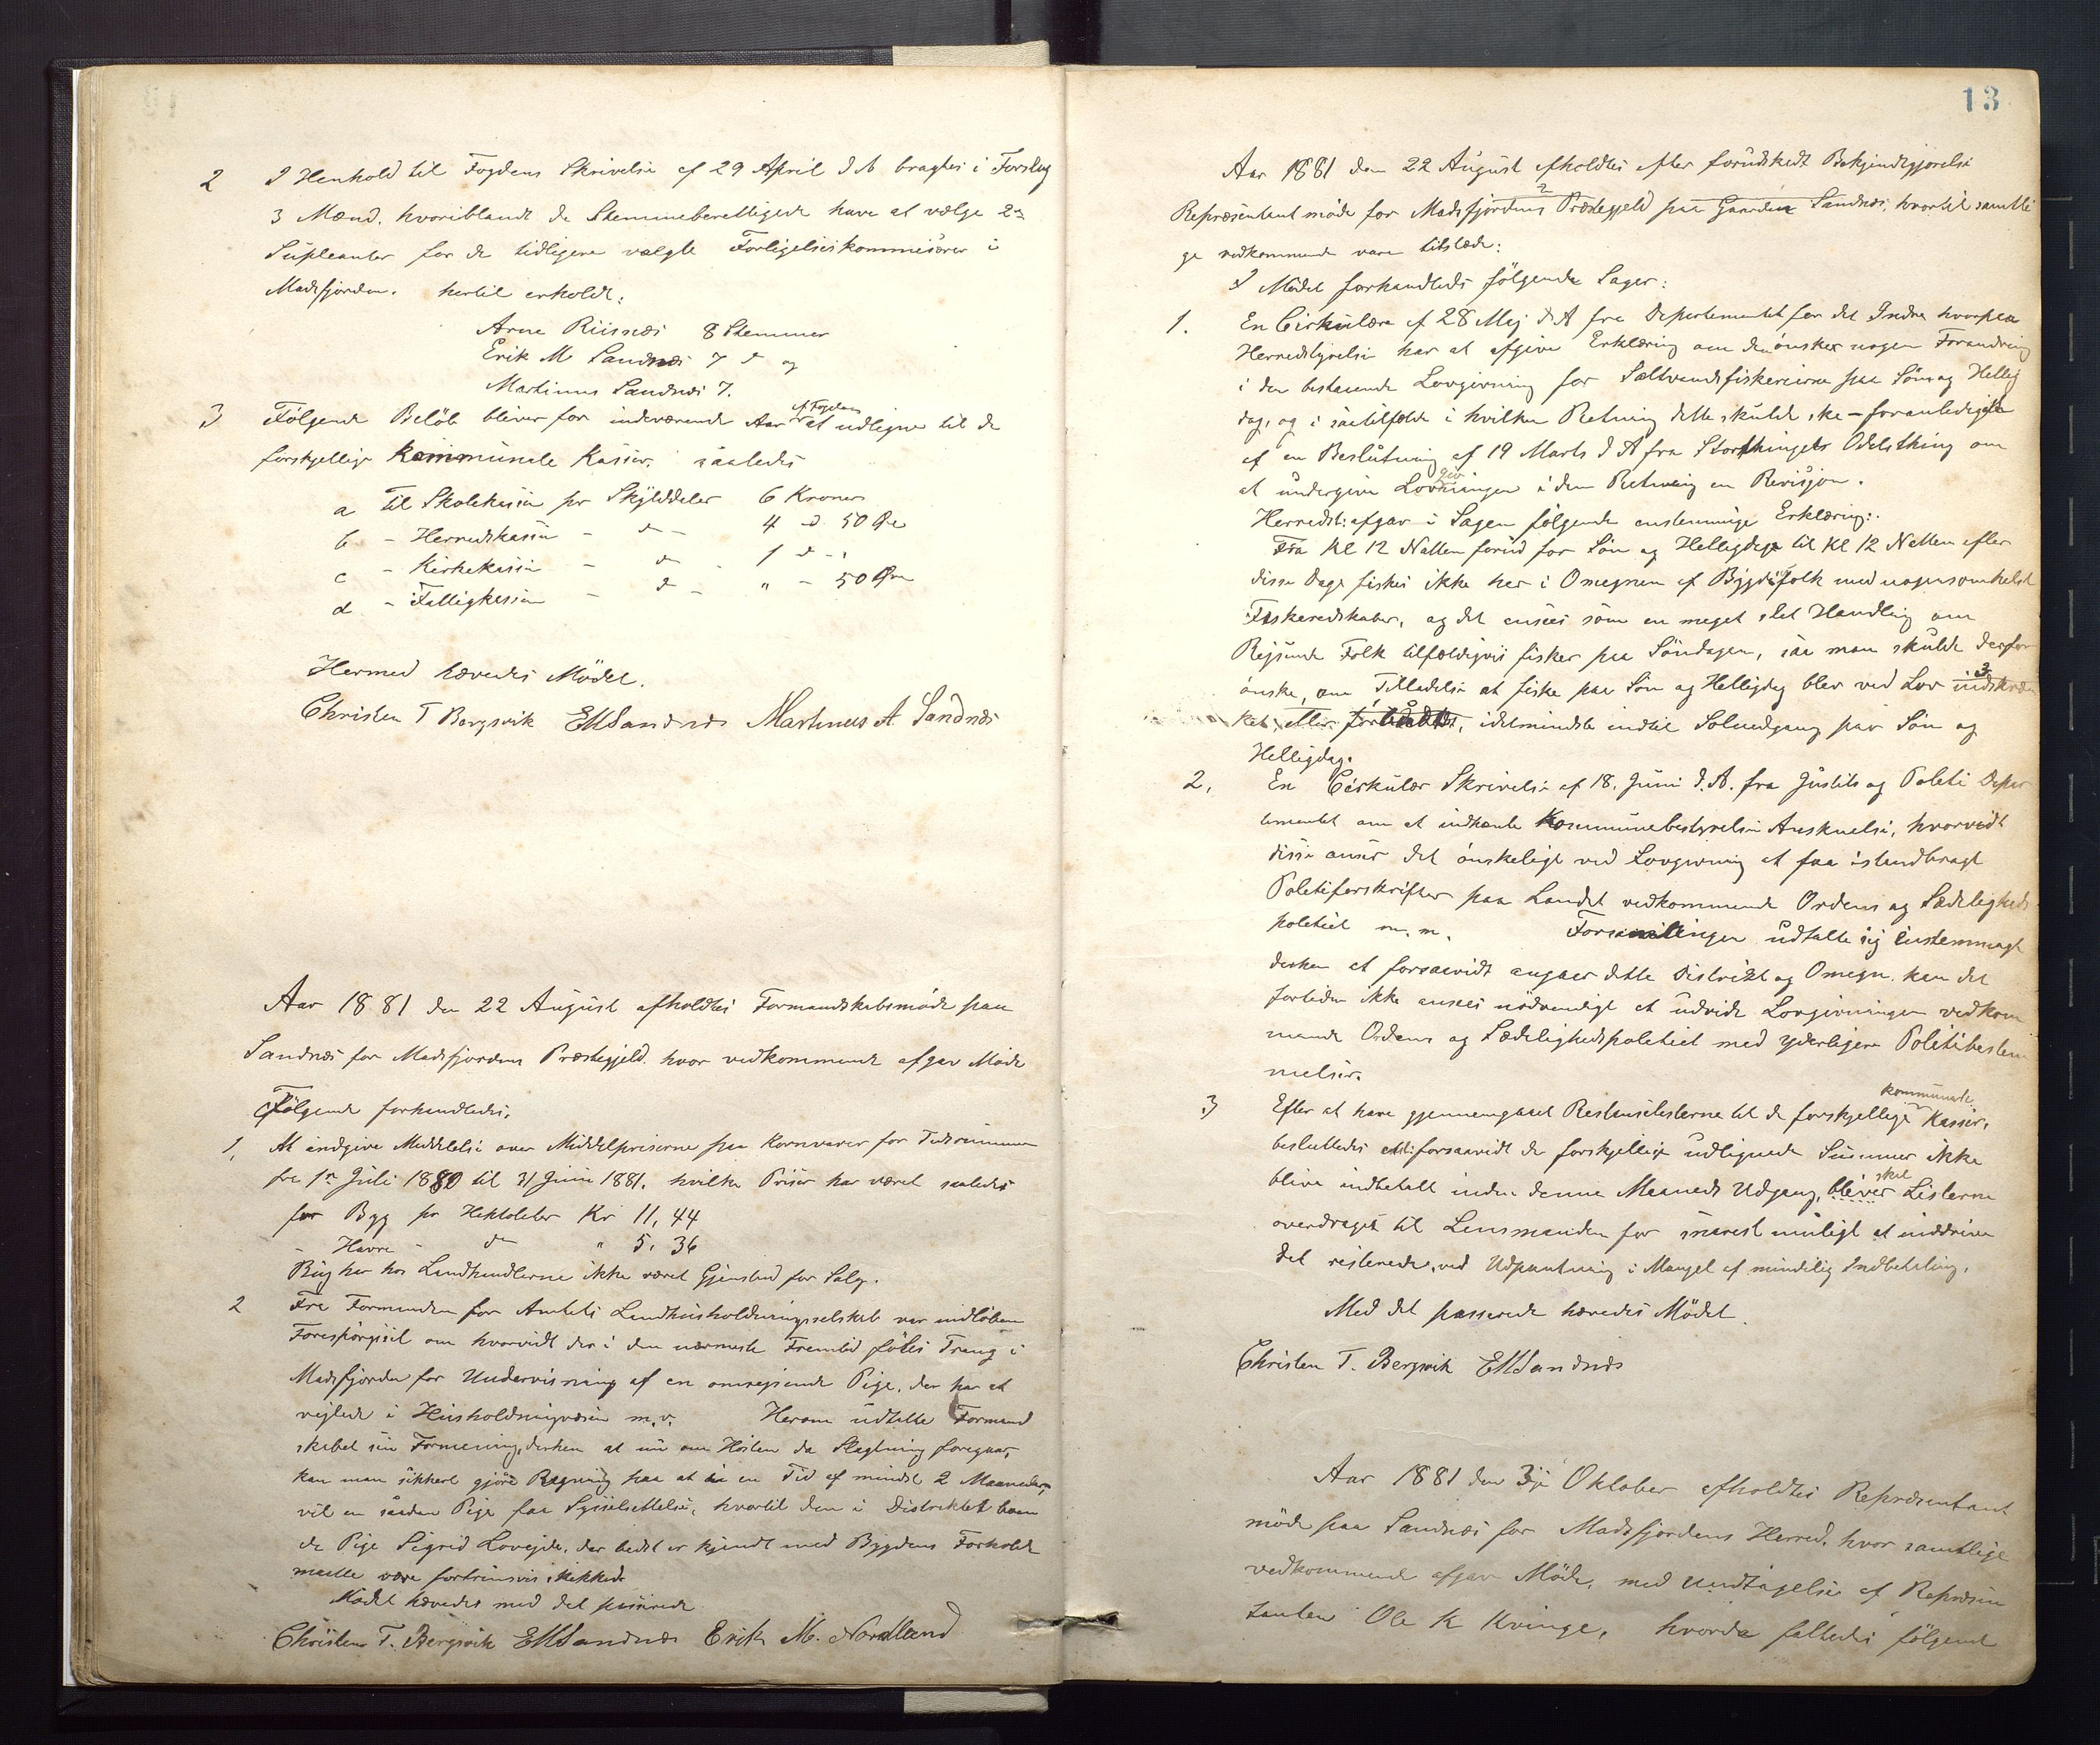 2 I Henhold til Fogdens Skrivelse af 29 April d A bragtes i Forslag
3 Mænd, hvoriblandt de Stemmeberettigede have at vælge 2de
Supleanter for de tidligere valgte Forligelseskommisærer i
Masfjorden. hertil erholdt:
Arne Riisnæs 8 Stemmer
Erik M. Sandnæs 7 d og
Martinus Sandnæs 7.
3 Følgende Beløb bliver for indeværende Aar af Fogden at udligne til de
forskjellige Kommunale Kasser, saaledes
a til Skolekassen pr Skylddaler 6 Kroner
b - Herredskassen - d - 4 d 50 Øre
c - Kirkekassen - d - 1 d -
d - Fattigkassen - d - " - 50 Øre
Hermed hævedes Mödet.
Christen T Bergsvik EMSandnæs Martinus A Sandnæs
Aar 1881 den 22 August afholdtes Formandskabsmöde paa
Sandnæs for Masfjordens Præstegjeld. hvor vedkommende afgav Möde
Følgende forhandledes.
1, At indgive Meddelelse over Middelpriserne paa Kornvarer for Tidsrummet
fra 1ste Juli 1880 til 31 Juni 1881. hvilke Priser har været saaledes
for Byg pr Hektoliter Kr 11,44
- Havre - d " 5,36
Rug har hos Landhandlerne ikke været Gjenstand for Salg.
2 Fra Formanden for Amtets Landhusholdningsselskab var indlöben
Forespörgsel om hvorvidt der i den nærmeste Fremtid föles Trang i
Masfjorden for Undervisning af en omreisende Pige, der har at
vejlede i Husholdningvæsen m.v. Herom udtalte Formand
skabet sin Formening, derhen at nu om Hösten da Slagtning foregaar,
kan man sikkert gjöre Regning paa at i en Tid af mindst 2 Maaneder,
vil en saadan Pige faa Sysselsettelse, hvortil den i Distriktet boen
de Pige Sigrid Lovejde, der bedst er kjendt med Bygdens Forholde
maatte være fortrinsvis skikked.
Mödet hævedes med det passerede
Christen T. Bergsvik EMSandnæs Erik M. Nordland
13
Aar 1881 den 22 August afholdtes efter forudskedt Bekjendtgjørelse
Repræsentant möde for Masfjordens Præstegjeld paa Gaarden Sandnæs, hvortil samtli
ge vedkommende vare tilstæde:
I Mödet forhandledes fölgende Sager:
1. En Cirkulære af 28 Maj d A fra Departementet for det Indre hvorpaa
Herredstyrelse har at afgive Erklæring om den önsker nogen Forandring
i den bestaaende Lovgivning for Saltvandsfiskerierne paa Søn og Hellig
dag, og i saatilfælde i hvilken Retning dette skulde ske - foranlediget
af en Beslutning af 19 Marts d A fra Storthingets Odelsthing om
at undergive Lovgivningen i den Retning en Revisjon.
Herredst: afgav i Sagen fölgende enstemmige Erklæring:
Fra Kl 12 Natten forud for Søn og Helligdage til Kl 12 Natten efter
disse Dage fiskes ikke her i Omegnen af Bygdefolk med nogensomhelst
Fiskeredskaber, og det ansees som en meget slet Handling om
Rejsende Folk tilfældigvis fisker paa Söndagen, saa man skulde derfor
önske, om Tilladelse at fiske paa Søn og Helligdag blev ved Lov indskræn
ket, eller forbudt, idetmindste indtil Solnedgang paa Søn og
Helligdag.
2, En Cirkulær Skrivelse af 18. Juni d. A. fra Justits og Politi Depar
tementet om at indhente Kommunebestyrelsens Anskuelse, hvorvidt
disse anser det önskeligt ved Lovgivning at faa istandbragt
Politiforskrifter paa Landet vedkommende Ordens og Sædeligheds
politiet m. m. Forsamlingen udtalte sig enstemmigt
derhen at forsaavidt angaar dette Distrikt og Omegn. kan det
fortiden ikke ansees nødvendigt at udvide Lovgivningen vedkom
mende Ordens og Sædelighedspolitiet med yderligere Politibestem
melser.
3 Efter at have gjennemgaaet Restanselisterne til de forskjellige kommunale Kasser,
besluttedes at: forsaavidt de forskjellige udlignede Summer ikke
blive indbetalt inden denne Maaneds Udgang, bliver skal Listerne
overdraget til Lensmanden for snarest muligt at inddrive
det resterende, ved Udpantning i Mangel af mindelig Indbetaling.
Med det passerede hævedes Mödet.
Christen T. Bergsvik EMSandnæs
Aar 1881 den 3je Oktober afholdtes Repræsentant
möde paa Sandnæs for Masfjordens Herred, hvor samtlige
vedkommende afgav Möde, med Undtagelse af Repræsen
tanten Ole K Kvinge, hvorda fattedes fölgende